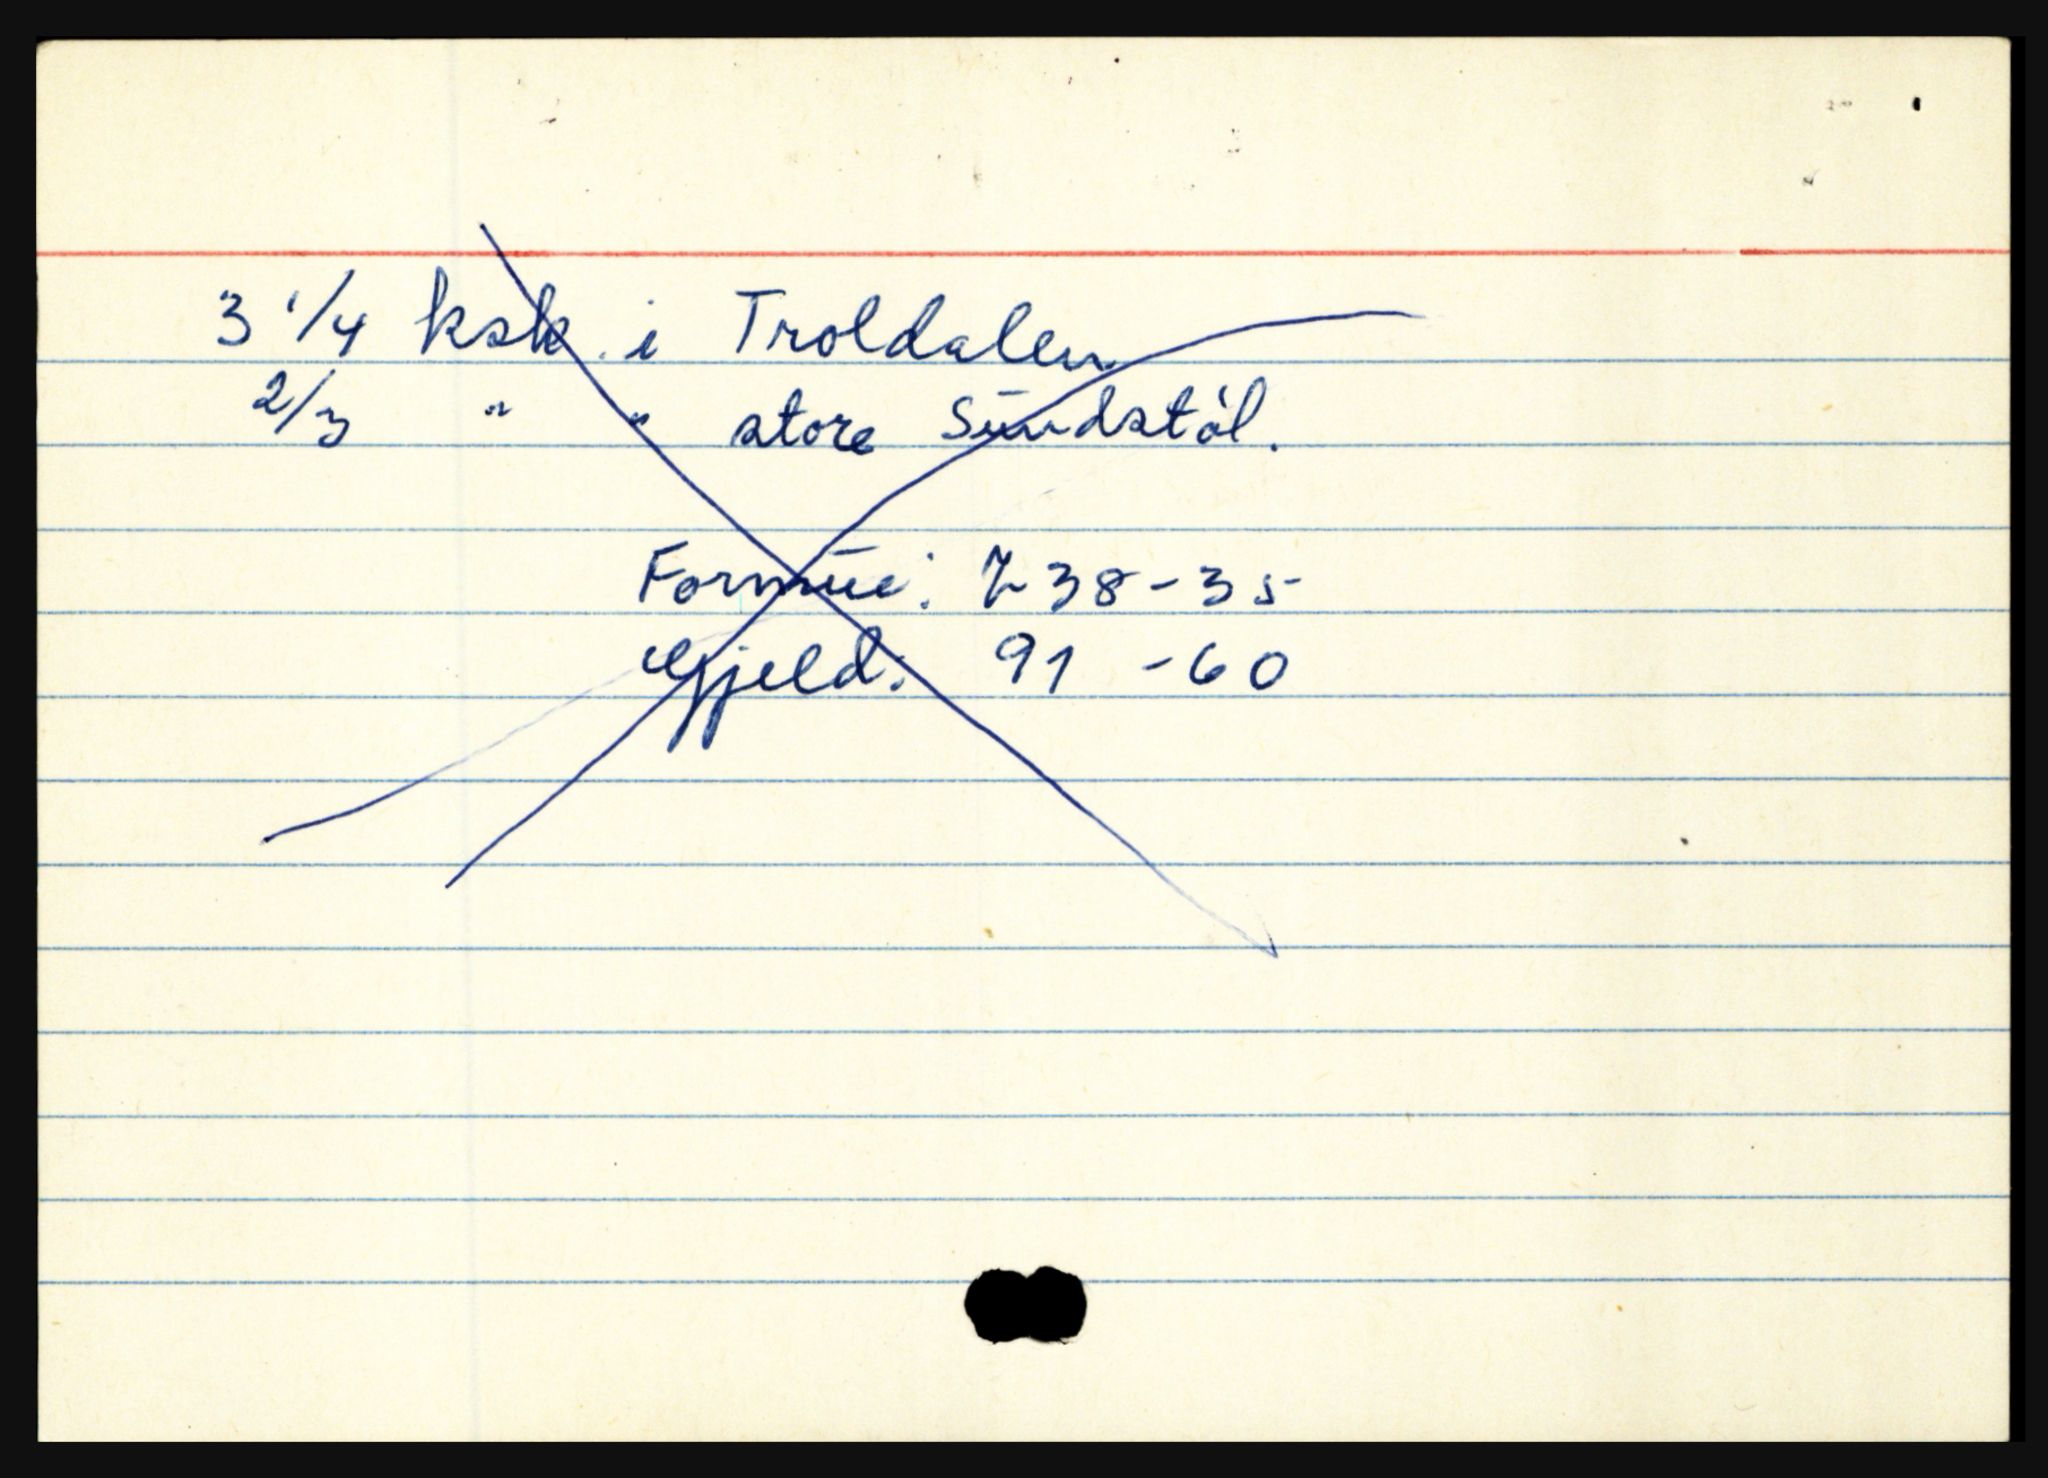 3 1/4 ksk. i Troldalen
2/3 " " store Sundstøl.
Formue: 738-35
Gjeld: 91 -60